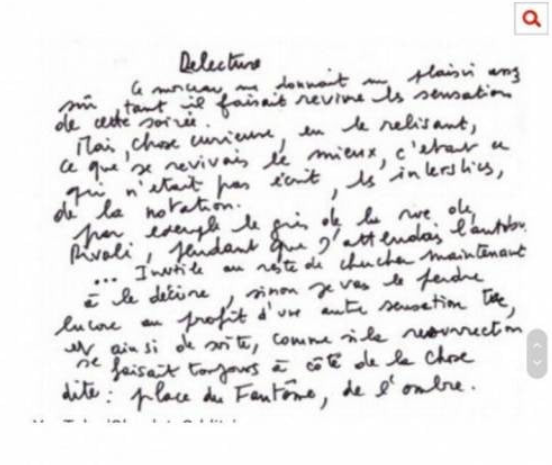 Delecture
Ce morceau me donnait un plaisir assez
sûr, tant il faisait revivre les sensations
de cette soirée.
Mais, chose curieuse, en le relisant,
ce que je revivais le mieux, c'était ce
qui n'était pas écrit, les interstices,
de la notation.
par exemple le gris de la rue de
Rivoli, pendant que j'attendais l'autobus
... Inutile au reste de chercher maintenant
à le décrire, sinon je vais le perdre
encore au profit d'une autre sensation
et ainsi de suite, comme si la résurrection
se faisait toujours à côté de la chose
dite : place du Fantôme, de l'ombre.